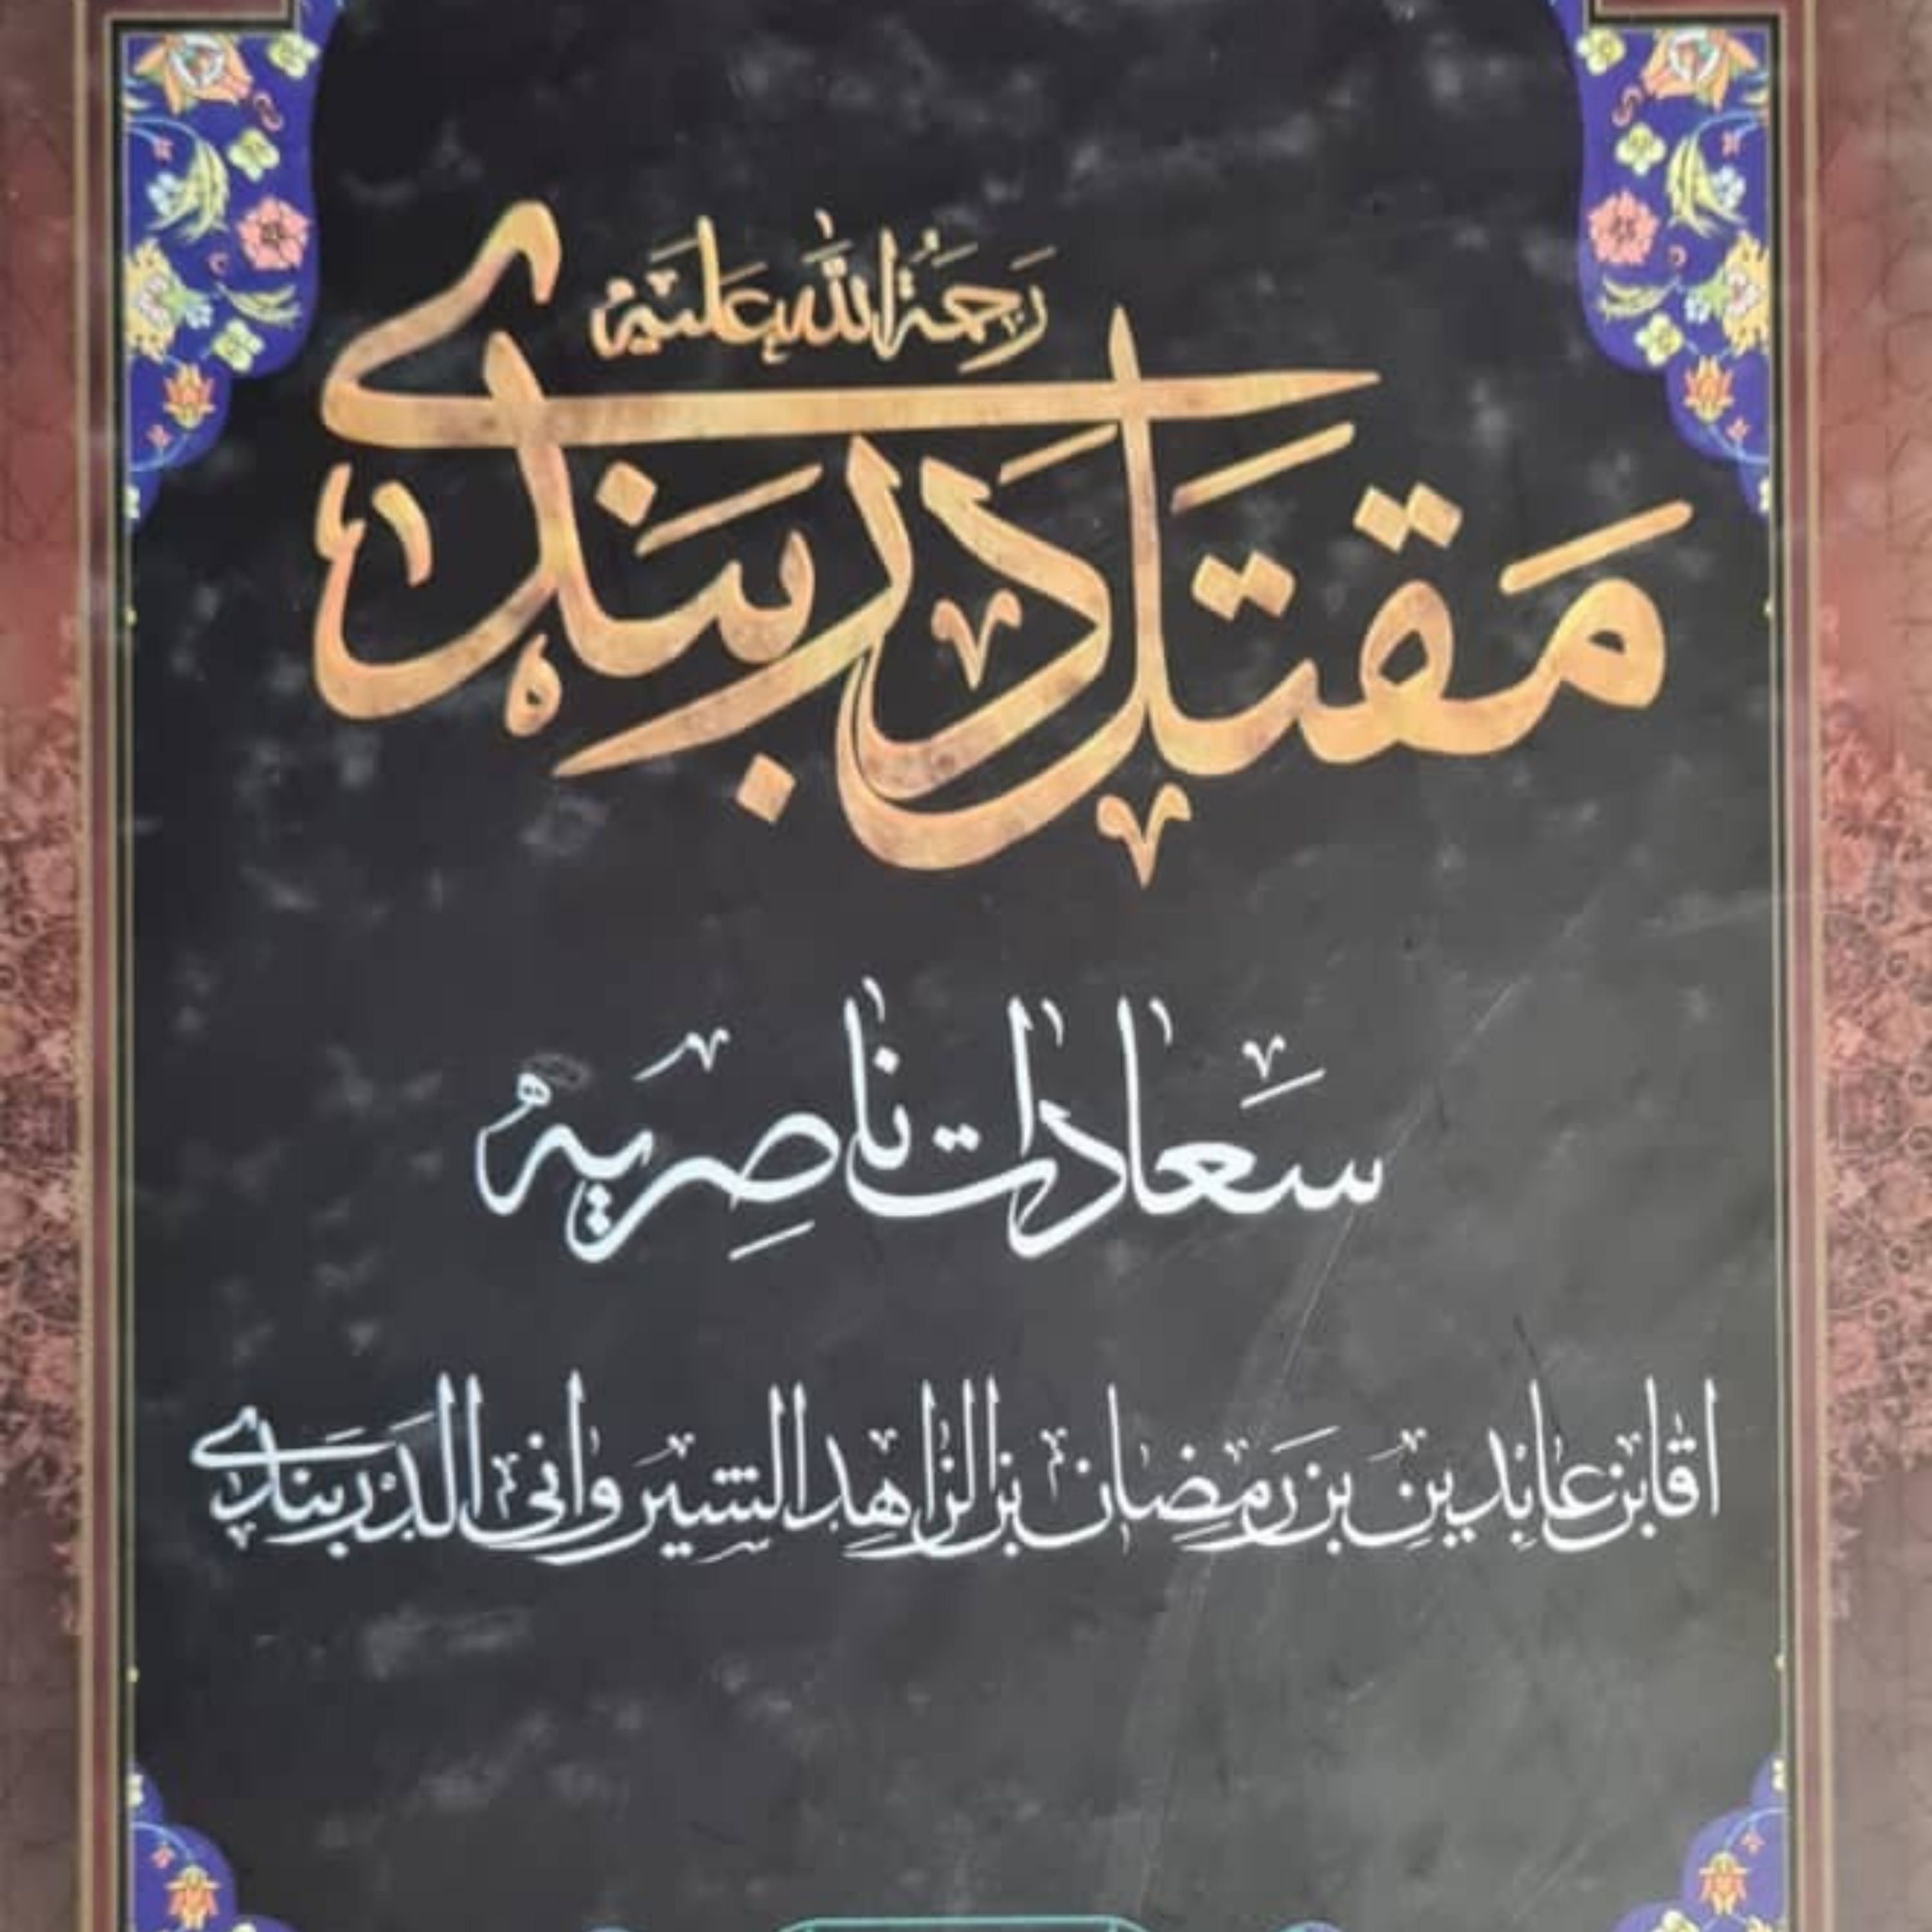 مَقتَل دَربَندی
رَحمَةُ اللّٰه عَلَیه
سَعادات ناصِریه
اقا بن عابدین بن رَمِضان بن الزاهد الشیروانی الدَربَندی